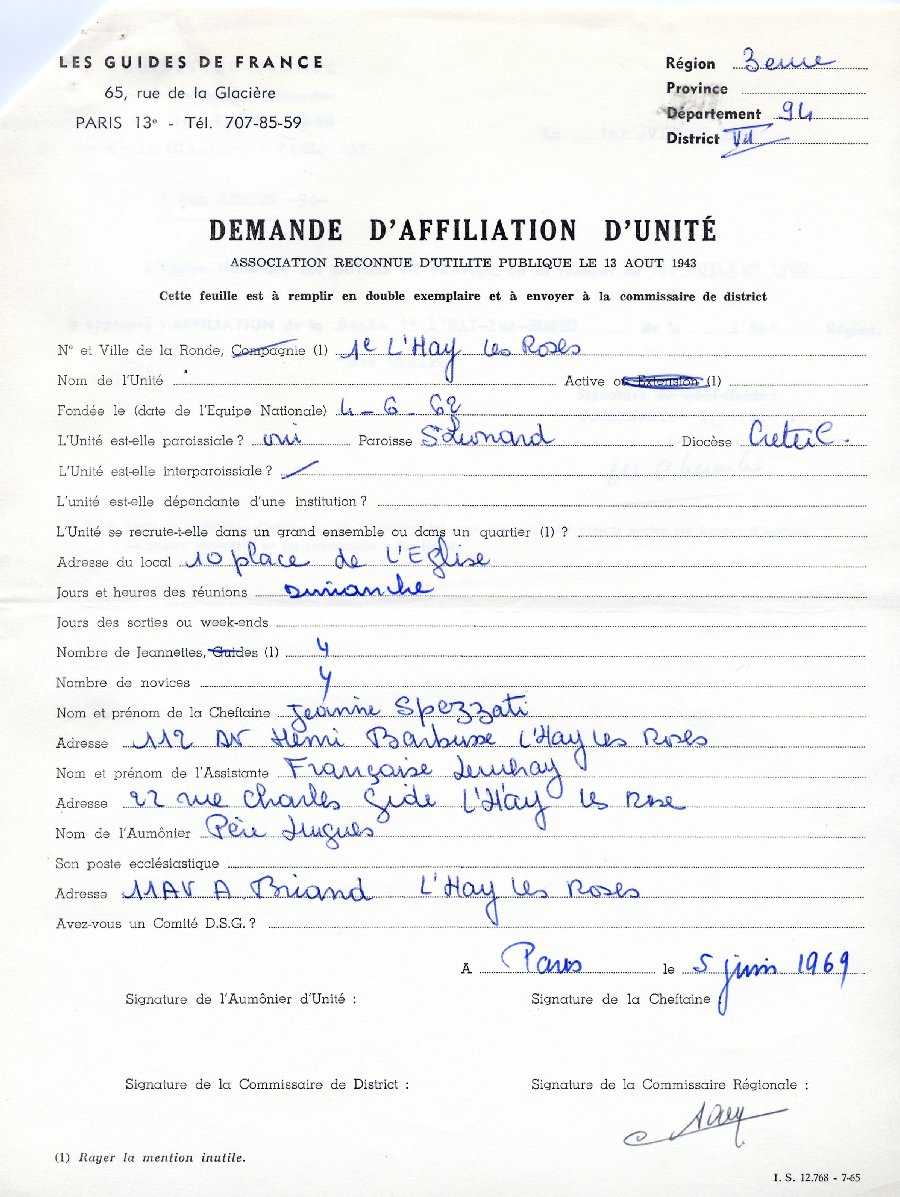 LES GUIDES DE FRANCE
65, rue de la Glacière
PARIS 13e - Tél. 707-85-59
Région 3eme
Province
Département 94
District VII
DEMANDE D'AFFILIATION D'UNITÉ
ASSOCIATION RECONNUE D'UTILITE PUBLIQUE LE 13 AOUT 1943
Cette feuille est à remplir en double exemplaire et à envoyer à la commissaire de district
N° et Ville de la Ronde, Compagnie (1) 1e L'Hay les Roses
Nom de l'Unité Active ou Extension (1)
Fondée le (date de l'Equipe Nationale) 4-6-62
L'Unité est-elle paroissiale ? oui Paroisse St Leonard Diocèse Creteil.
L'Unité est-elle interparoissiale ?
L'unité est-elle dépendante d'une institution ?
L'Unité se recrute-t-elle dans un grand ensemble ou dans un quartier (1) ?
Adresse du local 10 place de L'Eglise
Jours et heures des réunions Dimanche
Jours des sorties ou week-ends
Nombre de Jeannettes, Guides (1) 4
Nombre de novices 4
Nom et prénom de la Cheftaine Jeannine Spezzati
Adresse 112 AV Henri Barbusse L'Hay les Roses
Nom et prénom de l'Assistante Françoise
Adresse 22 rue Charles Gide L'Hay les Rose
Nom de l'Aumônier Père Hugues
Son poste ecclésiastique
Adresse 11 AV A Briand L'Hay les Roses
Avez-vous un Comité D.S.G. ?
A Paris le 5 juin 1969
Signature de l'Aumônier d'Unité : Signature de la Cheftaine
Signature de la Commissaire de District : Signature de la Commissaire Régionale :
(1) Rayer la mention inutile.
I. S. 12.768 - 7-65